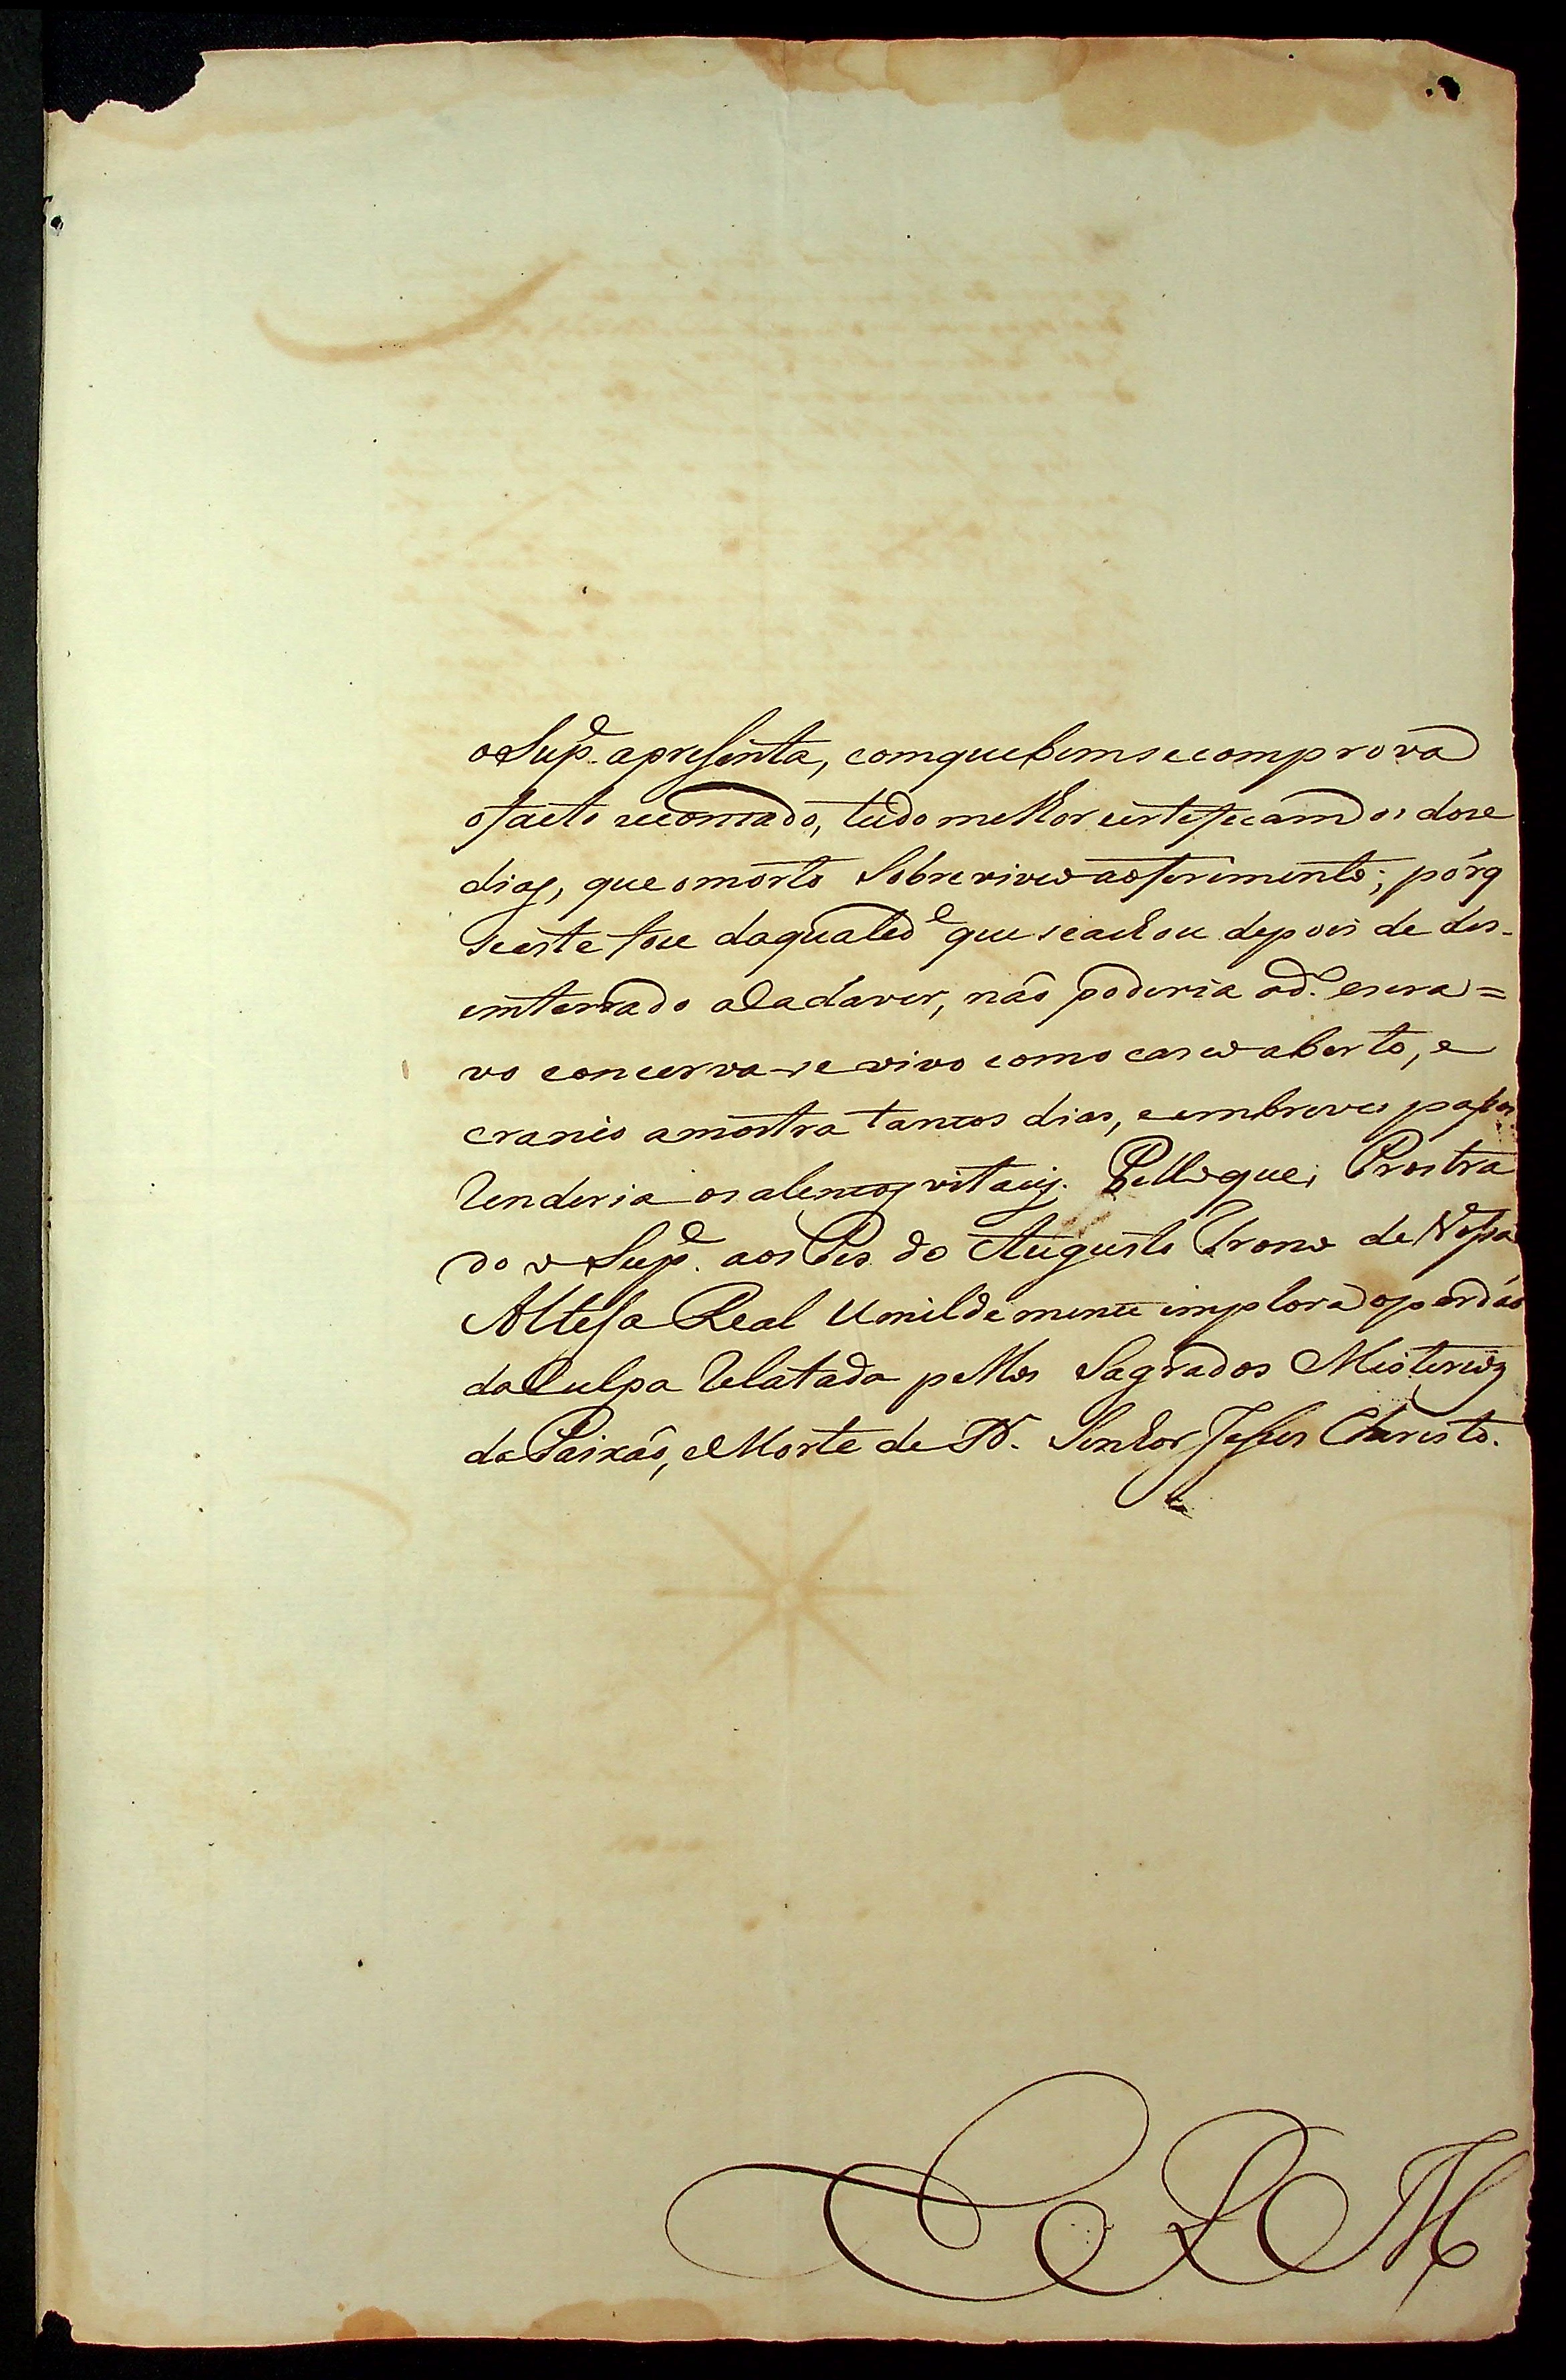 o Sup.e apresenta, com que bem se comprova
o facto recontado, tudo melhor certeficam os dose
dias, que o morto Sobreviveo ao ferimento; porq
se este foce da qualid.e que se achou depois de des-
emterrado a Cadaver, não poderia o d.o escra=
vo concerva-se vivo com o casco aberto, e
craneo amostra tantos dias, e em breves passos
Renderia os alentos vitaes. Pello que, Prostra
do o Sup.e aos Pes do Augusto Trono de Vossa
Altesa Real Umildemente implora o perdão
da Culpa Relatada pellos Sagrados Misterios
da Paixão, e Morte de N. Senhor Jesus Christo.
E R M